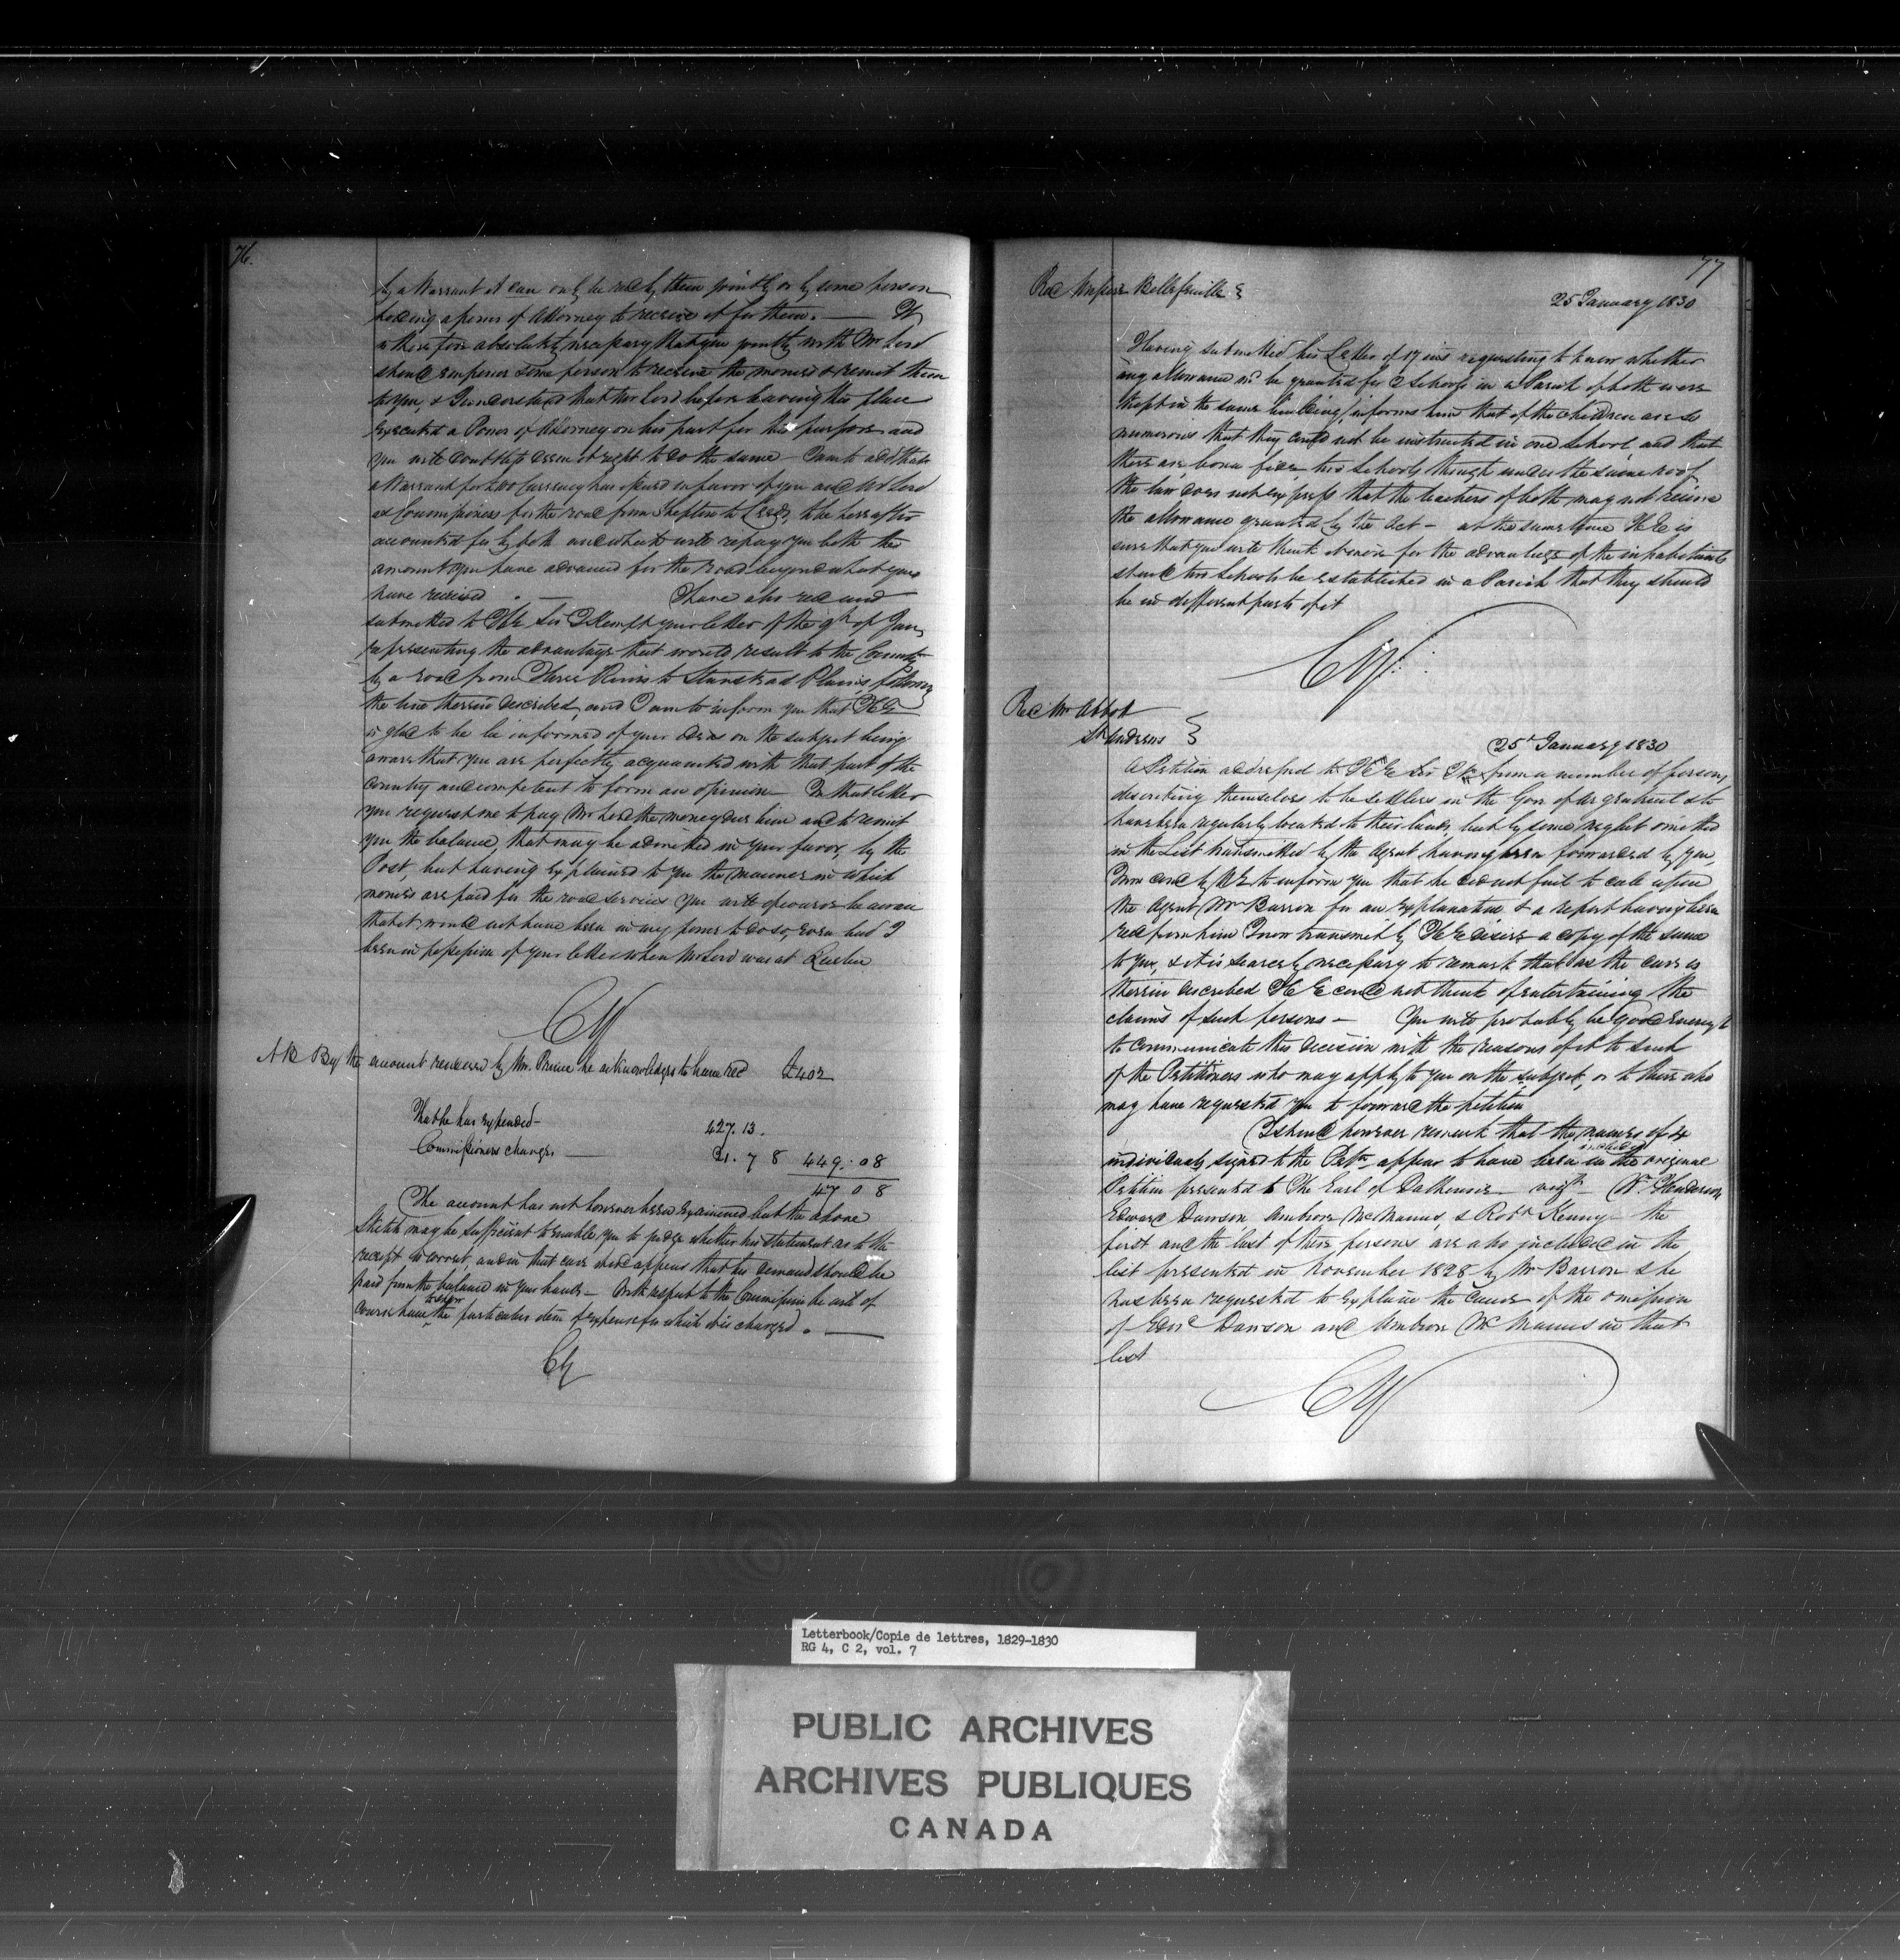 76.
by a Warrant it can only be recd by them jointly or by some person
holding a power of Attorney to receive it for them. — It
is therefore absolutely necessary that you jointly with Mr Lord
should empower some person to receive the monies & remit them
to you, & I understand that Mr Lord before leaving this place
executed a Power of Attorney on his part for this purpose and
you will doubtless deem it right to do the same — I am to add that
a Warrant for £ Currency has issued in favor of you and Mr Lord
as Commissioners for the road from Shefton to Leeds, to be hereafter
accounted for by both and which will repay you both the
amount you have advanced for the road beyond what you
have received . — I have also recd and
submitted to HE Sir J Kempt your letter of the 9th of Jany
representing the advantage that would result to the Country
by a road from Three Rivers to Stanstead Plains, following
the line therein described, and I am to inform you that HE
is glad to be be informed of your ideas on the subject being
aware that you are perfectly acquainted with that part of the
Country and competent to form an opinion — In that letter
you request me to pay Mr Lord the money due him and to remit
you the balance, that may be admitted in your favor, by the
Post, but having explained to you the manner in which
monies are paid for the road services you will of course be aware
that it would not have been in my power to do so, even had I
been in possession of your letter when Mr Lord was at Quebec
CY
NB By the account rendered by Mr. Prince he acknowledges to have recd £402
That he has expended — 427. 13.
Commissioners charges — 21. 7 8 449. 0 8
47 0 8
The account has not however been examined but the above
Sketch may be sufficient to enable you to judge whether his statement as to the
receipt is correct, and in that case it would appear that his demand should be
paid from the balance in your hands — With respect to the Commission he will of
course have to shew the particular item of expense for which it is charged. —
CY
77
Revd Messire Bellefeuille
25 January 1830
Having submitted his Letter of 17 inst requesting to know whether
any allowance wd be granted for 2 Schools in a Parish if both were
kept in the same building/ informs him that if the children are so
numerous that they could not be instructed in one School and that
there are bona fide two Schools though under the same roof
the law does not express that the teachers of both may not receive
the allowance granted by the Act — at the same time HE is
sure that you will think it more for the advantage of the inhabitants
should two Schools be established in a Parish that they should
be in different parts of it
CY
Revd Mr Abbott
St Andrews
25th January 1830
A Petition addressed to HE Sir JK from a number of persons
describing themselves to be settlers in the Gore of Argenteuil & to
have been regularly located to their lands but by some neglect omitted
in the List transmitted by the Agent having been forwarded by you,
I'm comd by HE to inform you that he did not fail to call upon
the Agent Mr Barron for an explanation & a report having been
recd from him I now transmit by HE desire a copy of the same
to you, & it is scarcely necessary to remark that as the case is
therein described HE could not think of entertaining the
claims of such persons — You will probably be good enough
to communicate this decision with the reasons of it to such
of the Petitioners who may apply to you on the subject, or to those who
may have requested you to forward the petition
I should however remark that the names of 4
individuals signed to the Petn appear to have been included in the original
Petition presented to The Earl of Dalhousie vizt Wm Henderson
Edward Dawson Ambrose McManus, & Robt Kenny — the
first and the last of these persons are also included in the
list presented in November 1828 by Mr Barron & he
has been requested to explain the cause of the omission
of Edwd Dawson and Ambrose McManus in that
list
CY
Letterbook/Copie de lettres, 1829-1830
RG 4, C 2, vol. 7
PUBLIC ARCHIVES
ARCHIVES PUBLIQUES
CANADA